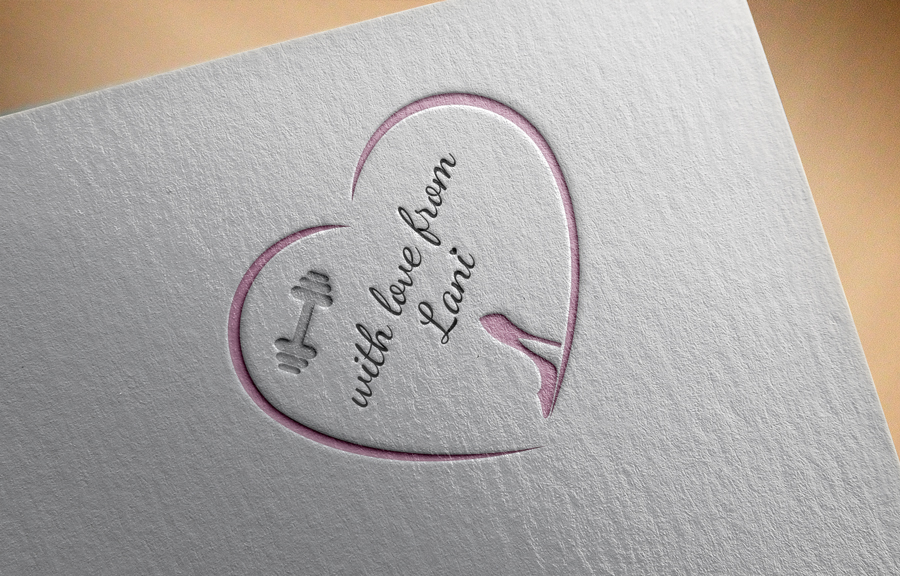 with love from
Lani